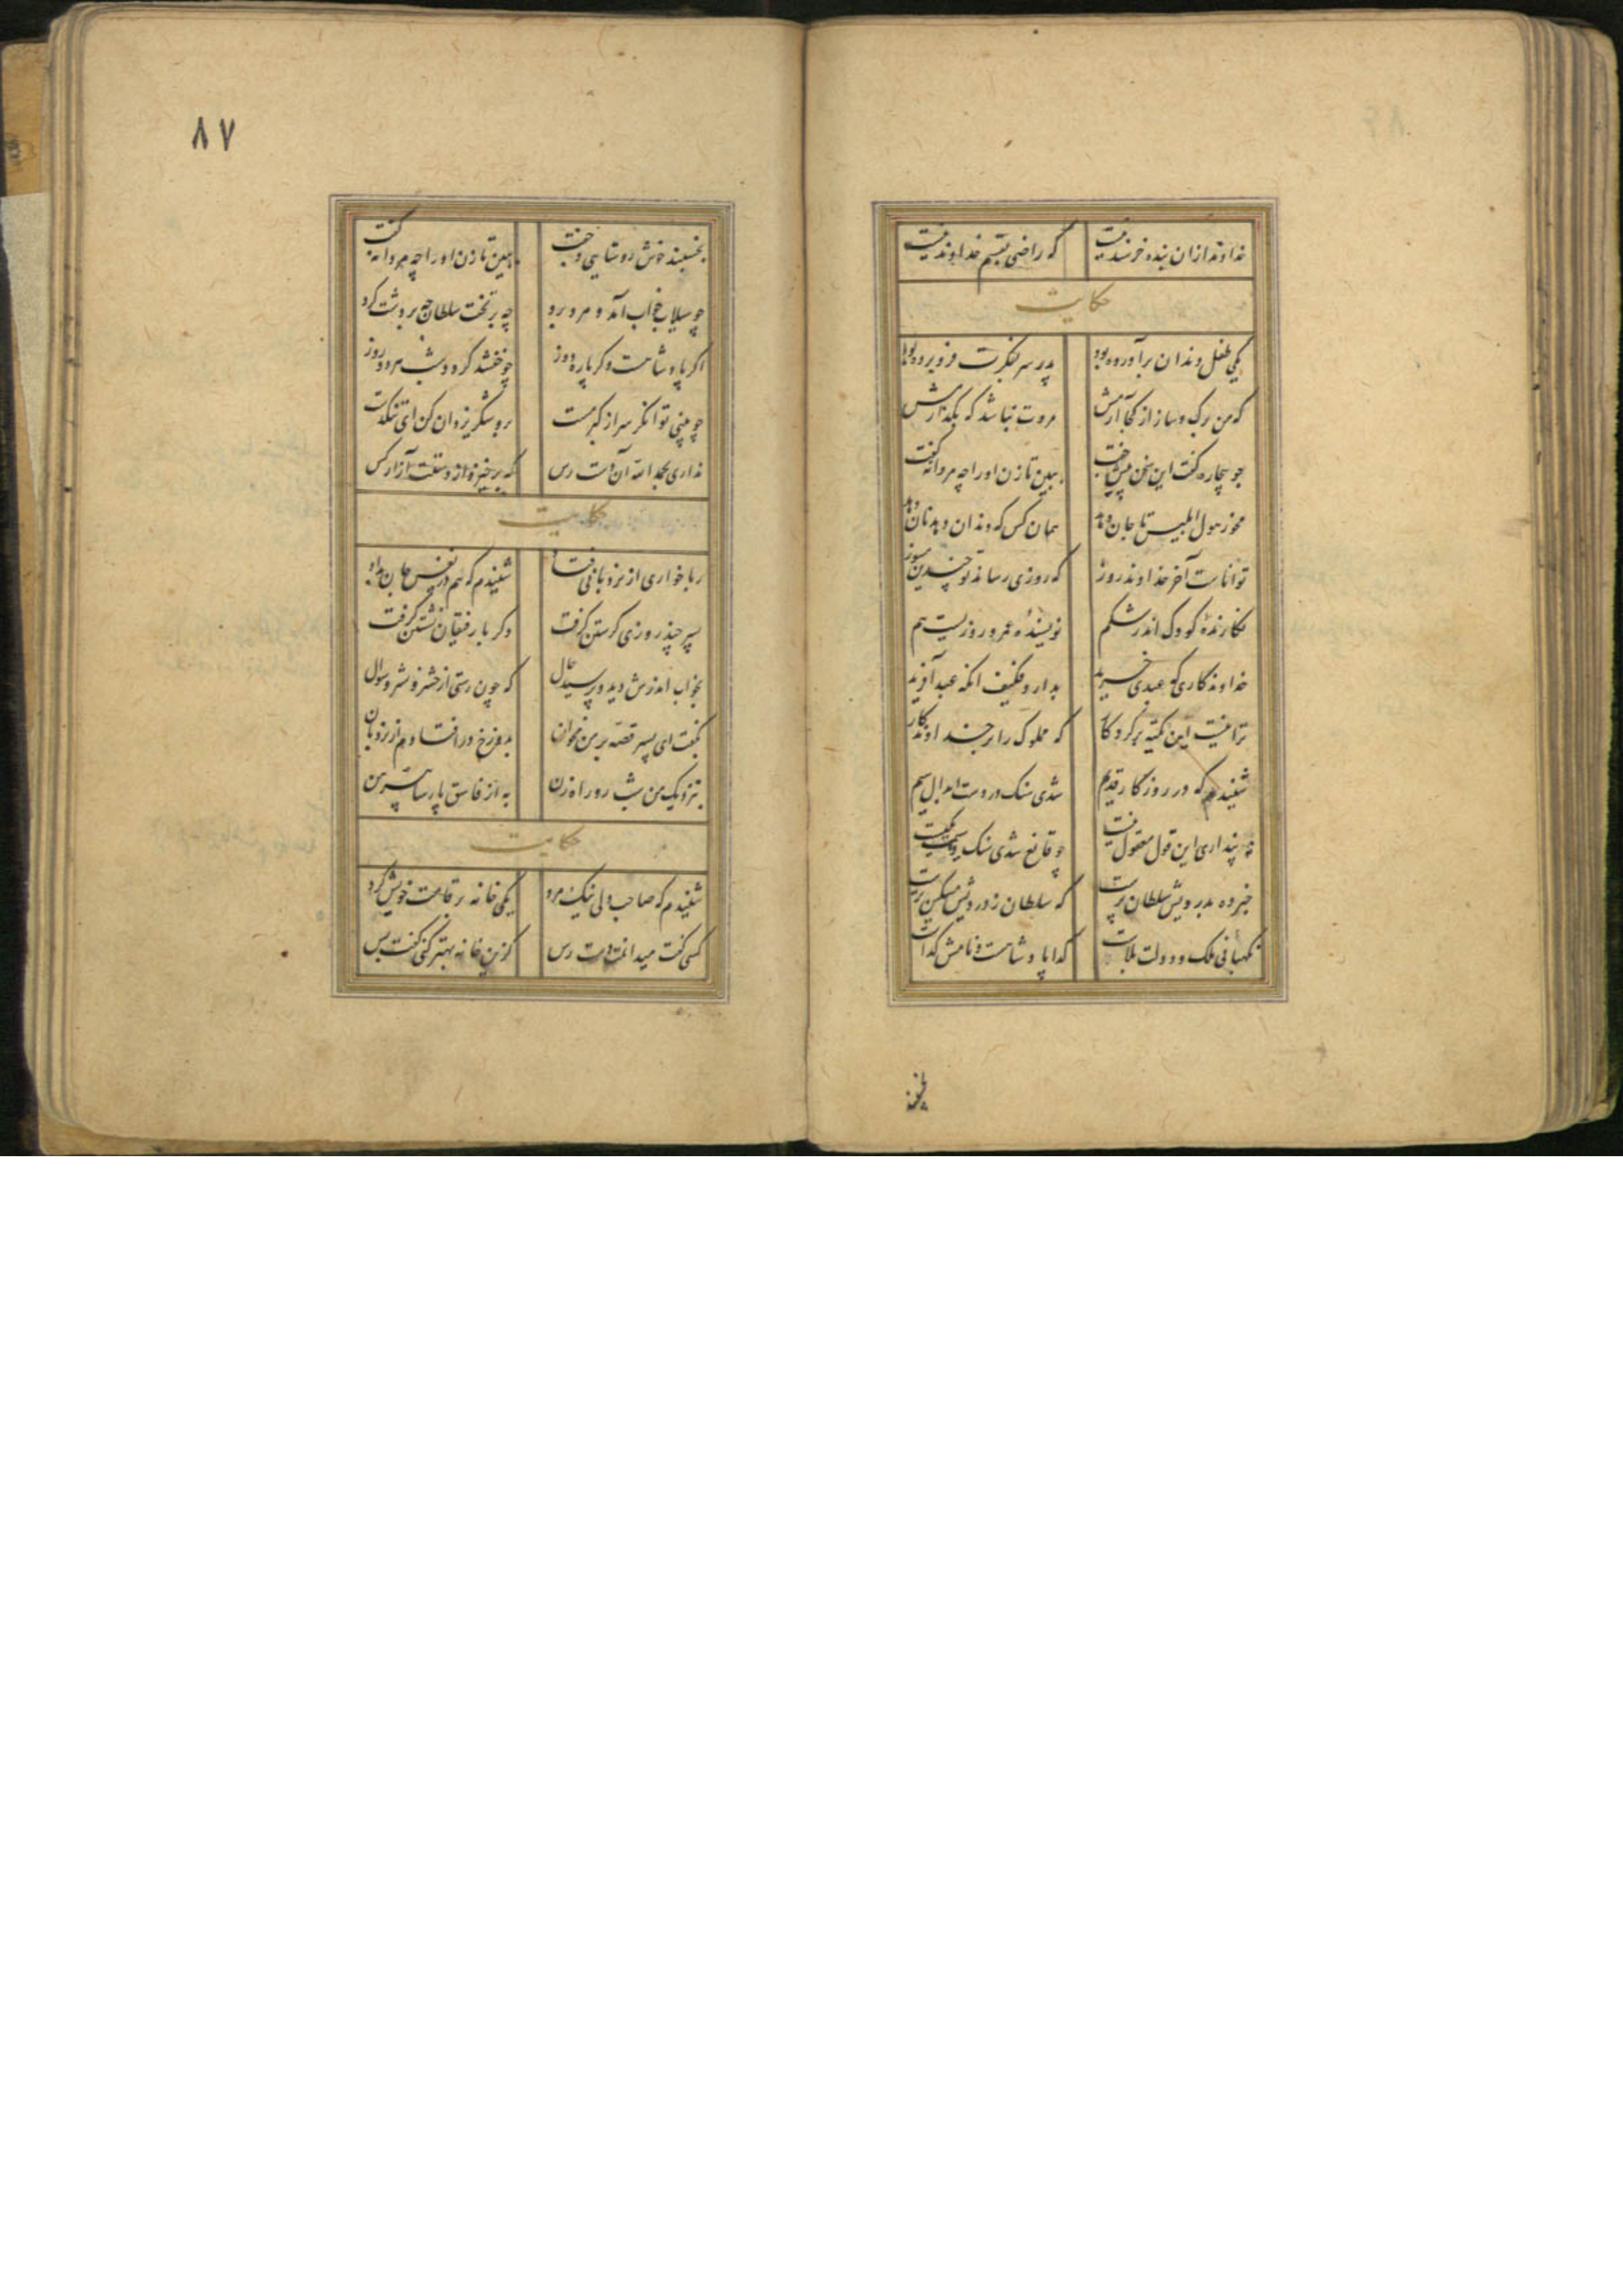 خداوند ازان بنده خرسند نیست که راضی بقسم خداوند نیست
حکایت
یکی طفل دندان برآورده بود پدر سر بفکرت فرو برده بود
که من برک و ساز از کجا آرمش مروت نباشد که بگذارمش
جو بیچاره گفت این سخن پیش جفت ببین تا زن او را چه مردانه گفت
مخور هول ابلیس تا جان دهد همان کس که دندان دهد نان دهد
تواناست آخر خداوند روز که روزی رساند تو چندین مسوز
نکارندهٔ کودک اندر شکم نویسندهٔ عمر و روزیست هم
خداوندکاری که عبدی خرید بدارد فکیف آنکه عبد آفرید
ترا نیست این تکیه بر کردکار که مملوک را بر خداوندکار
شنیدم که در روزکار قدیم شدی سنک در دست ابدال سیم
نپنداری این قول معقول نیست چو قانع شدی سنک و سیمت یکیست
خبر ده بدرویش سلطان پرست که سلطان ز درویش مسکین ترست
نکهبانی ملک و دولت بلاست کدا پادشاست و نامش کداست
بخسبند
٨٧
بخسبند خوش روستایی و جفت ببین تا زن او را چه مردانه گفت
چو سیلاب خواب آمد و مرد برد چه بر تخت سلطان چه بر دشت کرد
اکر پادشاهست و کر پاره دوز چو خفتند کردد شب مرد روز
چو بینی توانکر سر از کبر مست برو شکر یزدان کن ای تنکدست
نداری بحمد الله آن دست رس که برخیزد از دستت آزار کس
حکایت
رباخواری از نردبانی فتاد شنیدم که هم در نفس جان بداد
پسر چند روزی کرستن کرفت دکر با رفیقان نشستن کرفت
بخواب اندرش دید و پرسید حال که چون رستی از حشر و نشر و سوال
بگفت ای پسر قصه بر من مخوان بدوزخ در افتادم از نردبان
بنزدیک من شب رو راه زن به از فاسق پارسا پیرهن
حکایت
شنیدم که صاحب دلی نیک مرد یکی خانه بر قامت خویش کرد
کسی گفت میدانمت دست رس کزین خانه بهتر کنی گفت بس